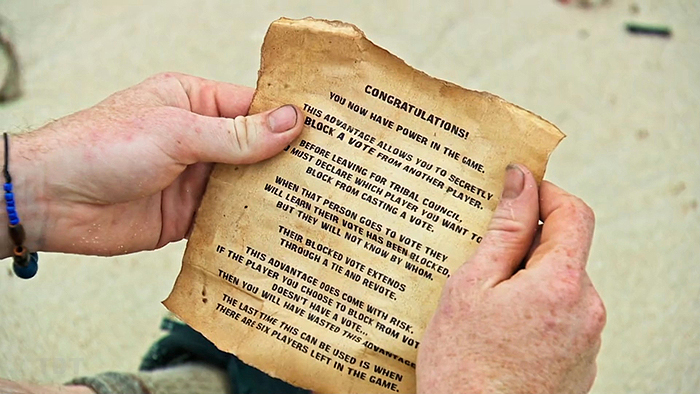 CONGRATULATIONS!
YOU NOW HAVE POWER IN THE GAME.
THIS ADVANTAGE ALLOWS YOU TO SECRETLY
BLOCK A VOTE FROM ANOTHER PLAYER.
BEFORE LEAVING FOR TRIBAL COUNCIL,
MUST DECLARE WHICH PLAYER YOU WANT TO
BLOCK FROM CASTING A VOTE.
WHEN THAT PERSON GOES TO VOTE THEY
WILL LEARN THEIR VOTE HAS BEEN BLOCKED,
BUT THEY WILL NOT KNOW BY WHOM.
THEIR BLOCKED VOTE EXTENDS
THROUGH A TIE AND REVOTE.
THIS ADVANTAGE DOES COME WITH RISK.
IF THE PLAYER YOU CHOOSE TO BLOCK FROM VOT
DOESN'T HAVE A VOTE...
THEN YOU WILL HAVE WASTED THIS ADVANTAGE
THE LAST TIME THIS CAN BE USED IS WHEN
THERE ARE SIX PLAYERS LEFT IN THE GAME.